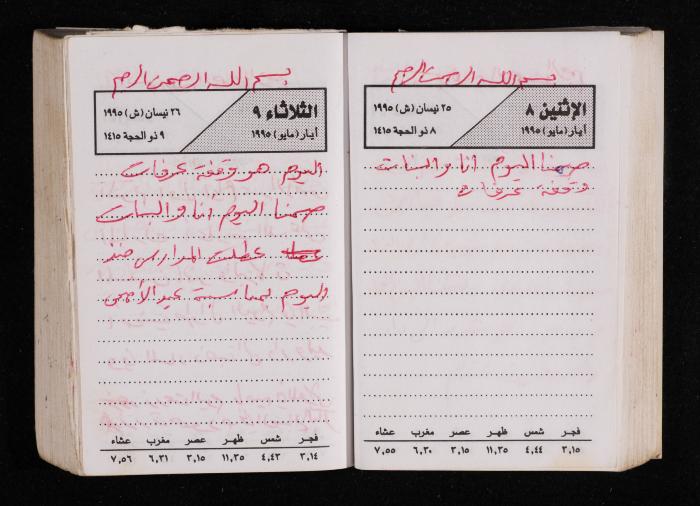 بسم الله الرحمن الرحيم
الإثنين ٨
أيار (مايو) ١٩٩٥
٢٥ نيسان (ش) ١٩٩٥
٨ ذو الحجة ١٤١٥
صمنا اليوم انا والبنات
وقفة عرفات
فجر شمس ظهر عصر مغرب عشاء
٣,١٥ ٤,٤٤ ١١,٣٥ ٣,١٥ ٦,٣٠ ٧,٥٥
بسم الله الرحمن الرحيم
الثلاثاء ٩
أيار (مايو) ١٩٩٥
٢٦ نيسان (ش) ١٩٩٥
٩ ذو الحجة ١٤١٥
اليوم هو وقفة عرفات
صمنا اليوم انا والبنات
عطلت المدارس منذ
اليوم بمناسبة عيد الأضحى
فجر شمس ظهر عصر مغرب عشاء
٣,١٤ ٤,٤٣ ١١,٣٥ ٣,١٥ ٦,٣١ ٧,٥٦